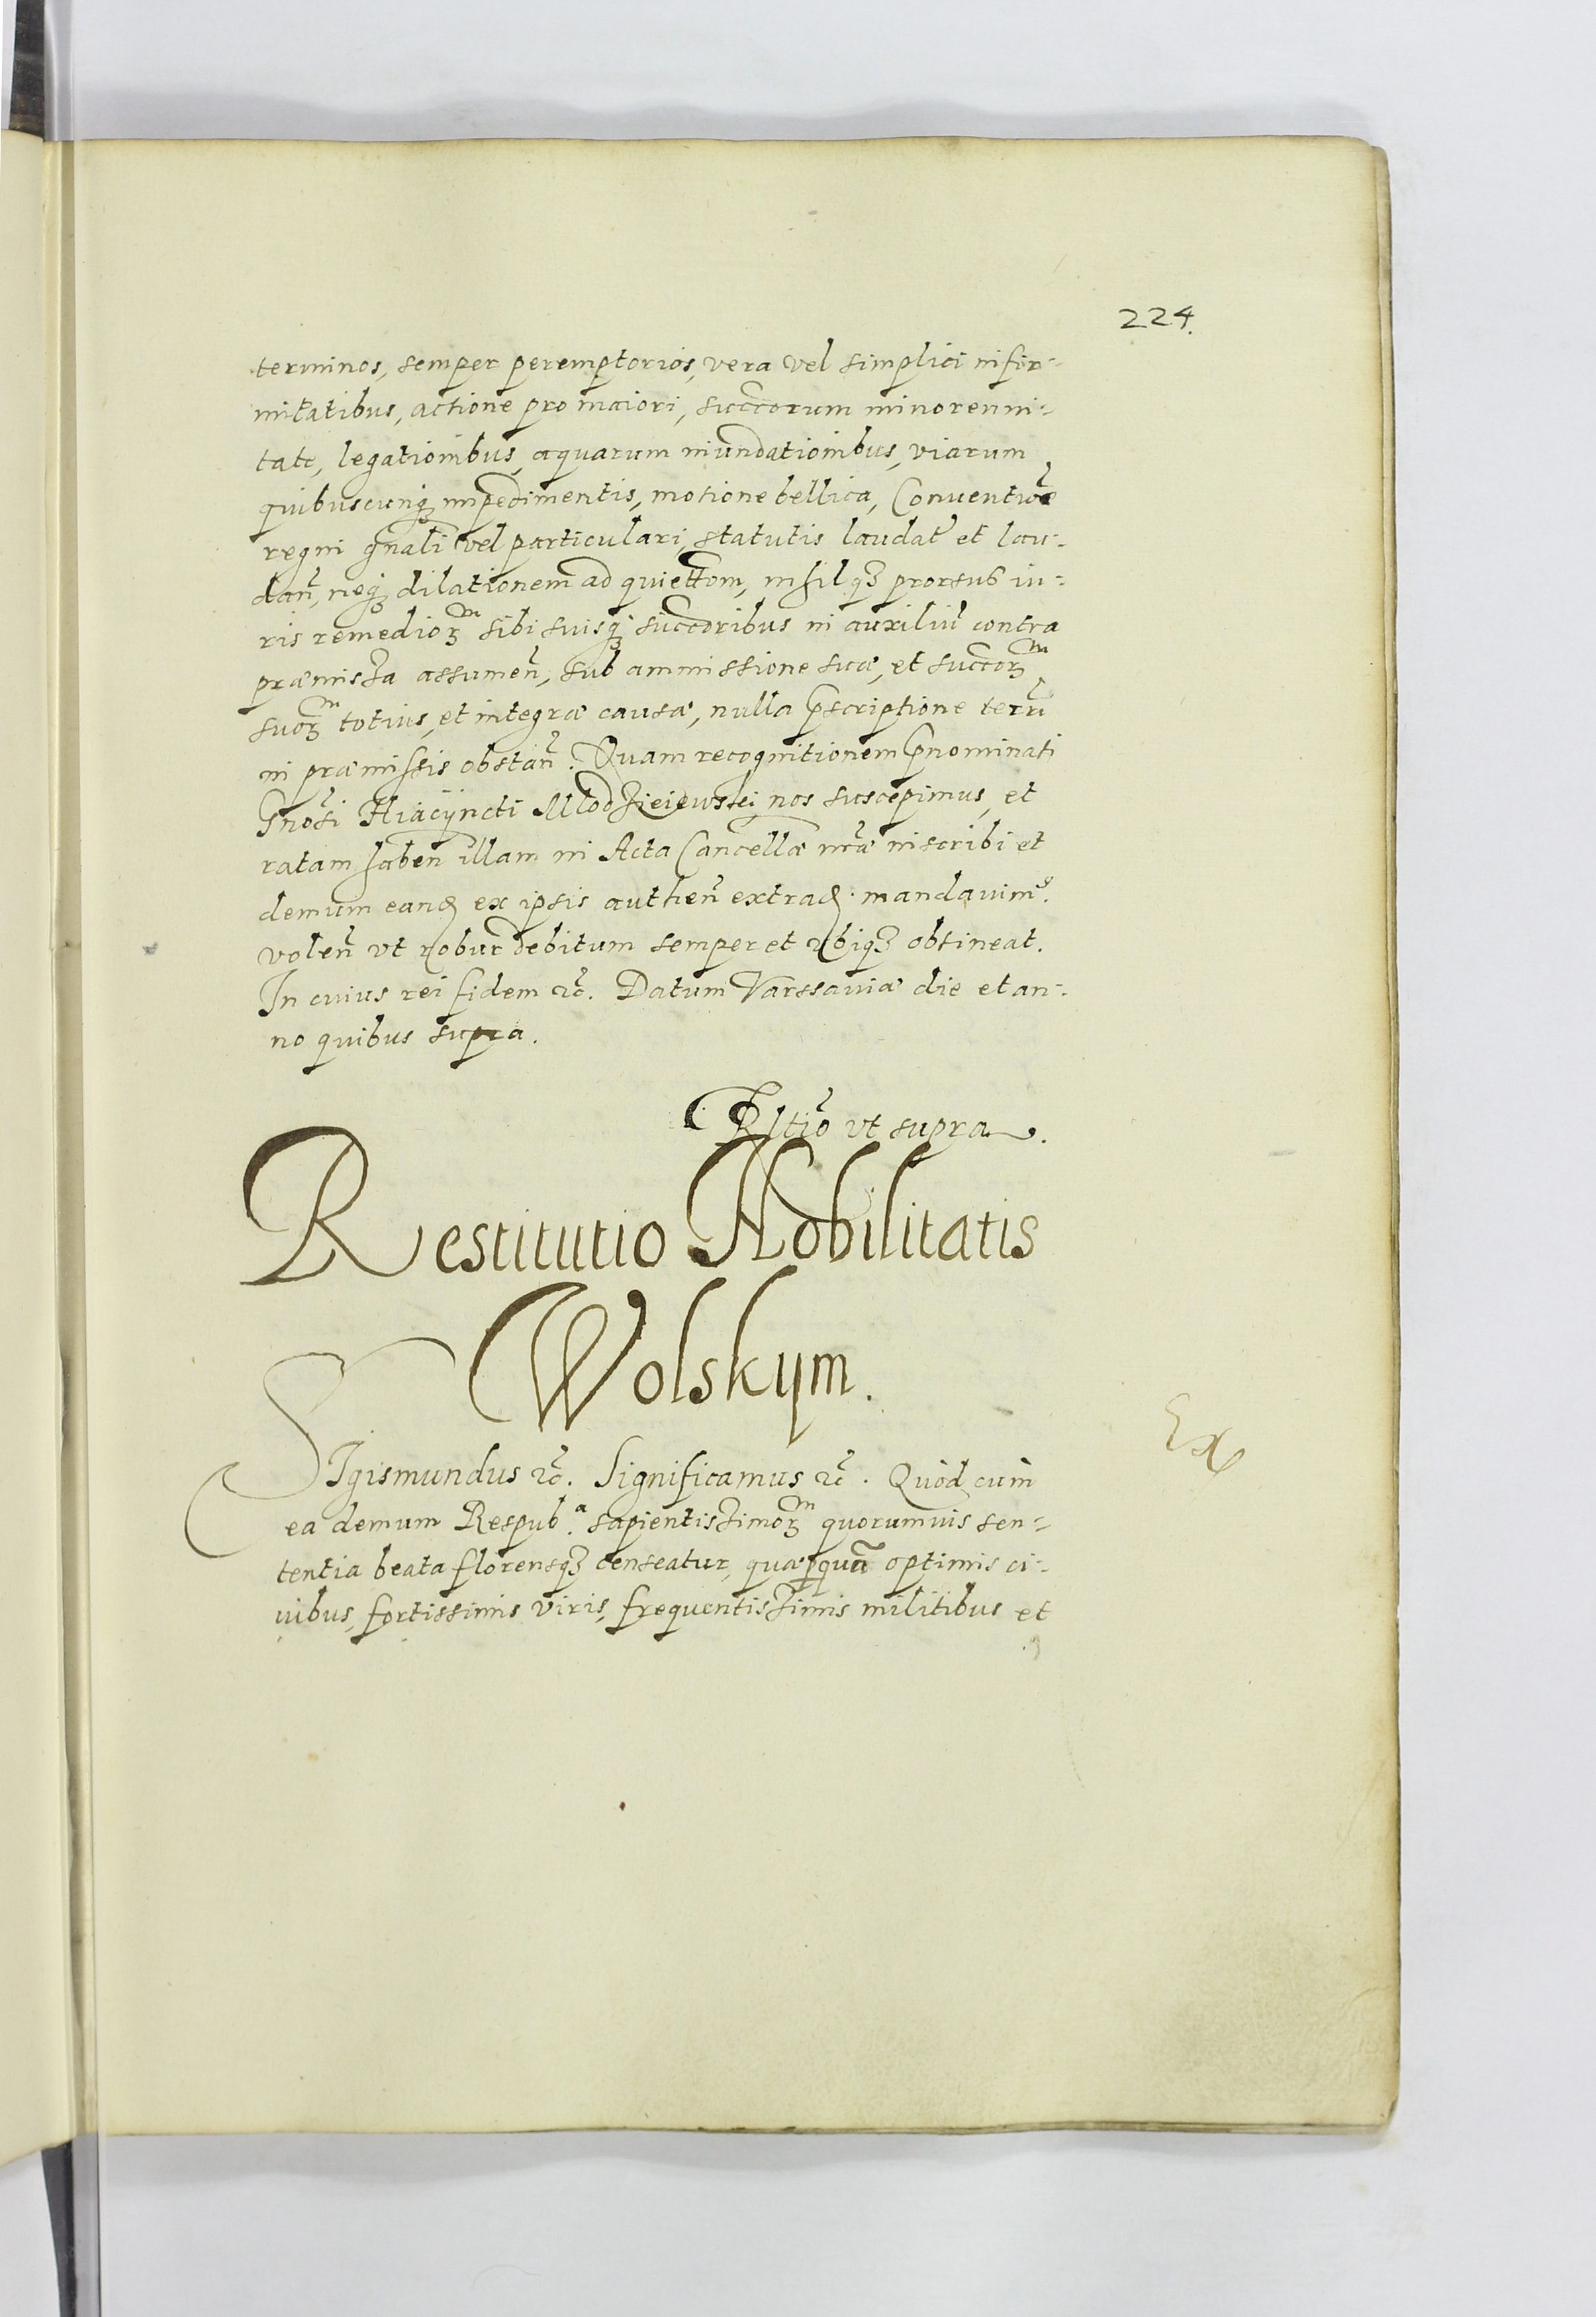 224.
terminos, semper peremptorios, vera vel simplici infir-
mitatibus, actione pro maiori, succorum minorenni-
tate, legationibus, aquarum inundationibus, viarum
quibuscunq₃ impedimentis, motione bellica, Conventũe
regni gñali vel particulari, statutis laudat̃ et lau-
dañ, neq₃ dilationem ad quiettom, nihilq₃ prorsus iu-
ris remedioꝝ sibi suisq₃ succoribus in auxiliũ contra
præmissa assumeñ, sub ammissione suæ, et succoꝝ
suoꝝ totius, et integræ causæ, nulla p̃scriptione terrĩ
in præmissis obstañ. Quam recognitionem p̃nominati
Gñosi Hiacÿncti Mlodzieiewski nos suscepimus, et
ratam habeñ illam in Acta Cancellæ nr̃æ inscribi et
demum eand ex ipsis autheñ extrad. mandavim⁹.
voleñ vt robur debitum semper et vbiq₃ obtineat.
In cuius rei fidem ꝛc̃. Datum Varssaviæ die et an-
no quibus supra.
Rltiõ vt supra.
Restitutio Nobilitatis
Wolskym.
SIgismundus ꝛc̃. Significamus ꝛc̃. Quòd cum
Ex
ea demum Respub.ᵃ sapientissimoꝝ quorumvis sen-
tentia beata florensq₃ censeatur, quæ ꝑquã optimis ci-
uibus, fortissimis viris, frequentissimis militibus et